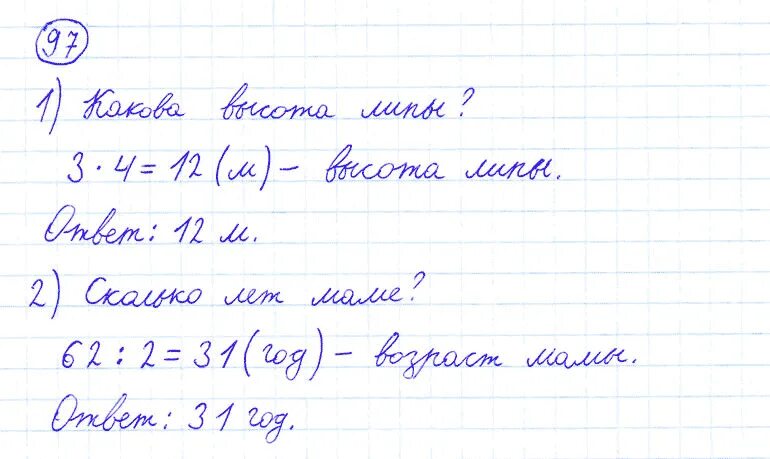 97
1) Какова высота липы?
3 · 4 = 12 (м) – высота липы.
Ответ: 12 м.
2) Сколько лет маме?
62 : 2 = 31 (год) – возраст мамы.
Ответ: 31 год.